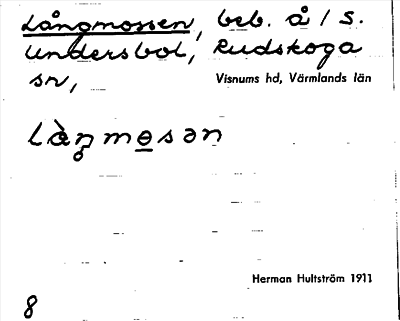 Långmossen, beb. å / S.
Undersbol, Rudskoga
sn,
Visnums hd, Värmlands län
Herman Hultström 1911
8